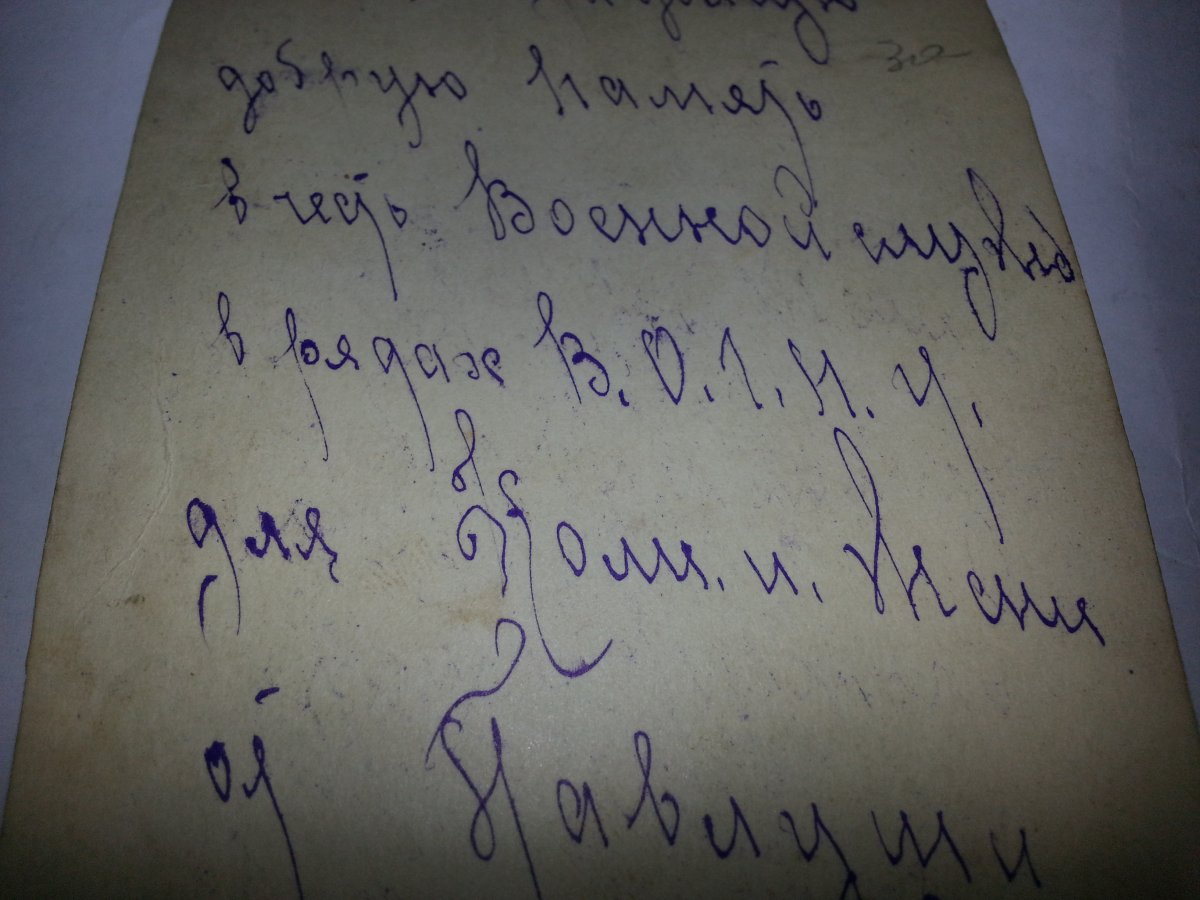 добрую память
в честь Военной службы
в рядах В.О.Г.Н.У.
для Коли. и. Жени
от Павлуши